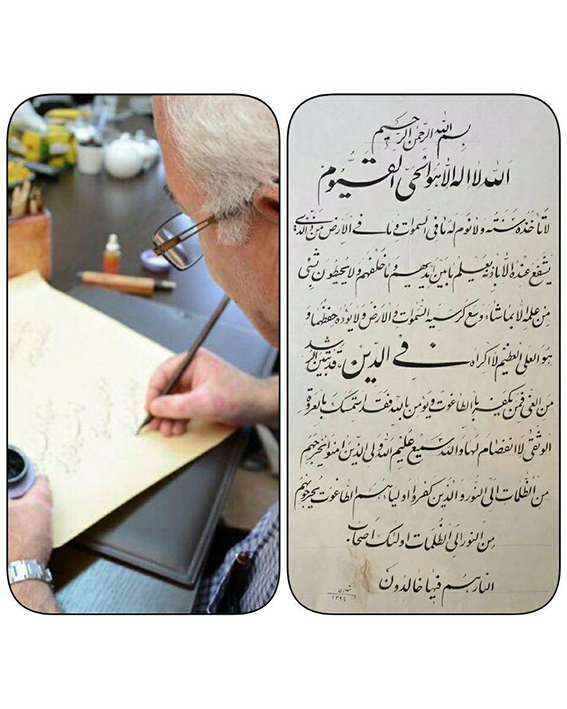 بسم الله الرحمن الرحیم
الله لا اله الا هو الحی القیوم
لا تأخذه سنته و لا نوم له ما فی السموات و ما فی الارض من ذا الذی
یشفع عنده الا باذنه یعلم ما بین ایدیهم و ما خلفهم و لا یحیطون بشی
من علمه الا بما شاء وسع کرسیه السموات و الارض و لا یوده حفظهما و
هو العلی العظیم لا اکراه فی الدین قد تبین الرشد
من الغی فمن یکفر بالطاغوت و یومن بالله فقد استمسک بالعروة
الوثقی لا انفصام لها و الله سمیع علیم الله ولی الذین امنوا یخرجهم
من الظلمات الی النور و الذین کفروا اولیاءهم الطاغوت یخرجونهم
من النور الی الظلمات اولئک اصحاب
النار هم فیها خالدون